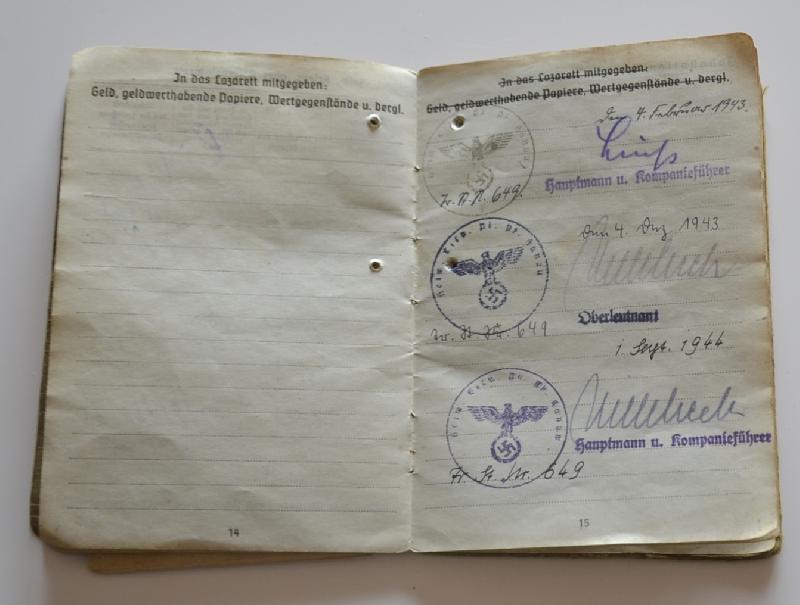 In das Lazarett mitgegeben:
Geld, geldwerthabende Papiere, Wertgegenstände u. dergl.
14
In das Lazarett mitgegeben:
Geld, geldwerthabende Papiere, Wertgegenstände u. dergl.
Den 4. Februar 1943.
Hauptmann u. Kompanieführer
649.
Den 4. Dez 1943
Oberleutnant
649
1. Sept. 1944
Hauptmann u. Kompanieführer
Fr. St. Nr. 649
15